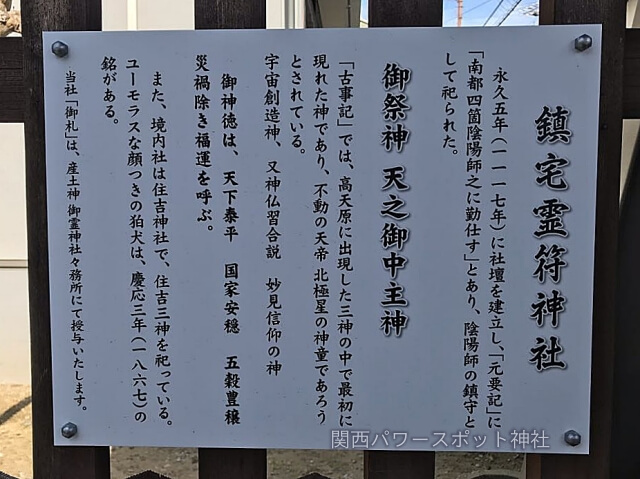 鎮宅霊符神社
永久五年(一一一七年)に社壇を建立し、「元要記」に
「南都四箇陰陽師之に勤仕す」とあり、陰陽師の鎮守と
して祀られた。
御祭神 天之御中主神
「古事記」では、高天原に出現した三神の中で最初に
現れた神であり、不動の天帝 北極星の神童であろう
とされている。
宇宙創造神、又神仏習合説 妙見信仰の神
御神徳は、天下泰平 国家安穏 五穀豊穣
災禍除き福運を呼ぶ。
また、境内社は住吉神社で、住吉三神を祀っている。
ユーモラスな顔つきの狛犬は、慶応三年(一八六七)の
銘がある。
当社「御札」は、産土神 御霊神社々務所にて授与いたします。
関西パワースポット神社